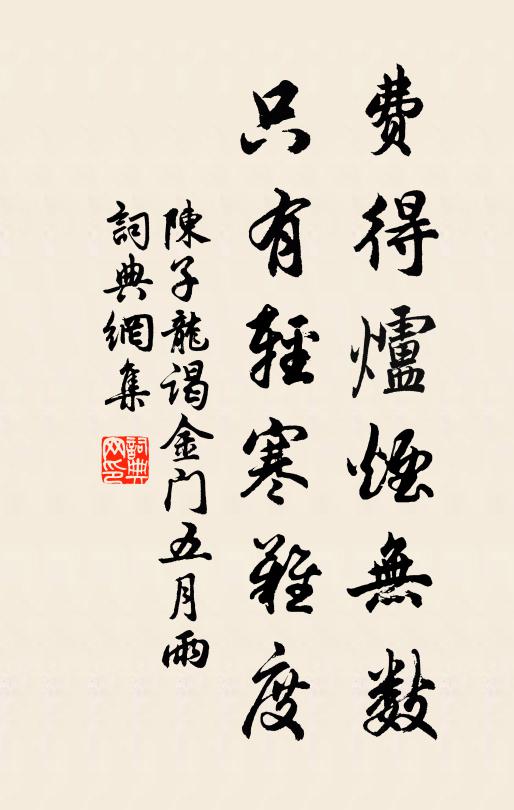 費得爐煙無數
只有輕寒難度
陳子龍謁金门五月雨
詞典網集
詞典网印